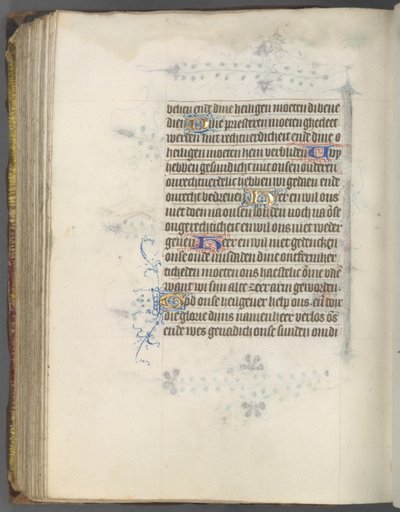 velien ende dine heiligen moeten di bene
dien Dine priesteren moeten ghecleet
werden mit rechtverdicheit ende dine
heiligen moeten hem verbliden Wy
hebben gesundicht mit onsen ouderen
onrechtverdelic hebben wi gedaen ende
onrecht bedreven Heer en wil ons
niet doen na onsen sonden noch na onse
ongerechticheit en wil ons niet weder
geven Heer en wil niet gedencken
onse oude misdaden dine ontfermher
ticheden moeten ons haestelic
want wi sijn alte zeer arm geworden
God onse heilgever help ons en doir
die glorie dijns namen heer verlos ons
ende wes genadich onse sunden om di